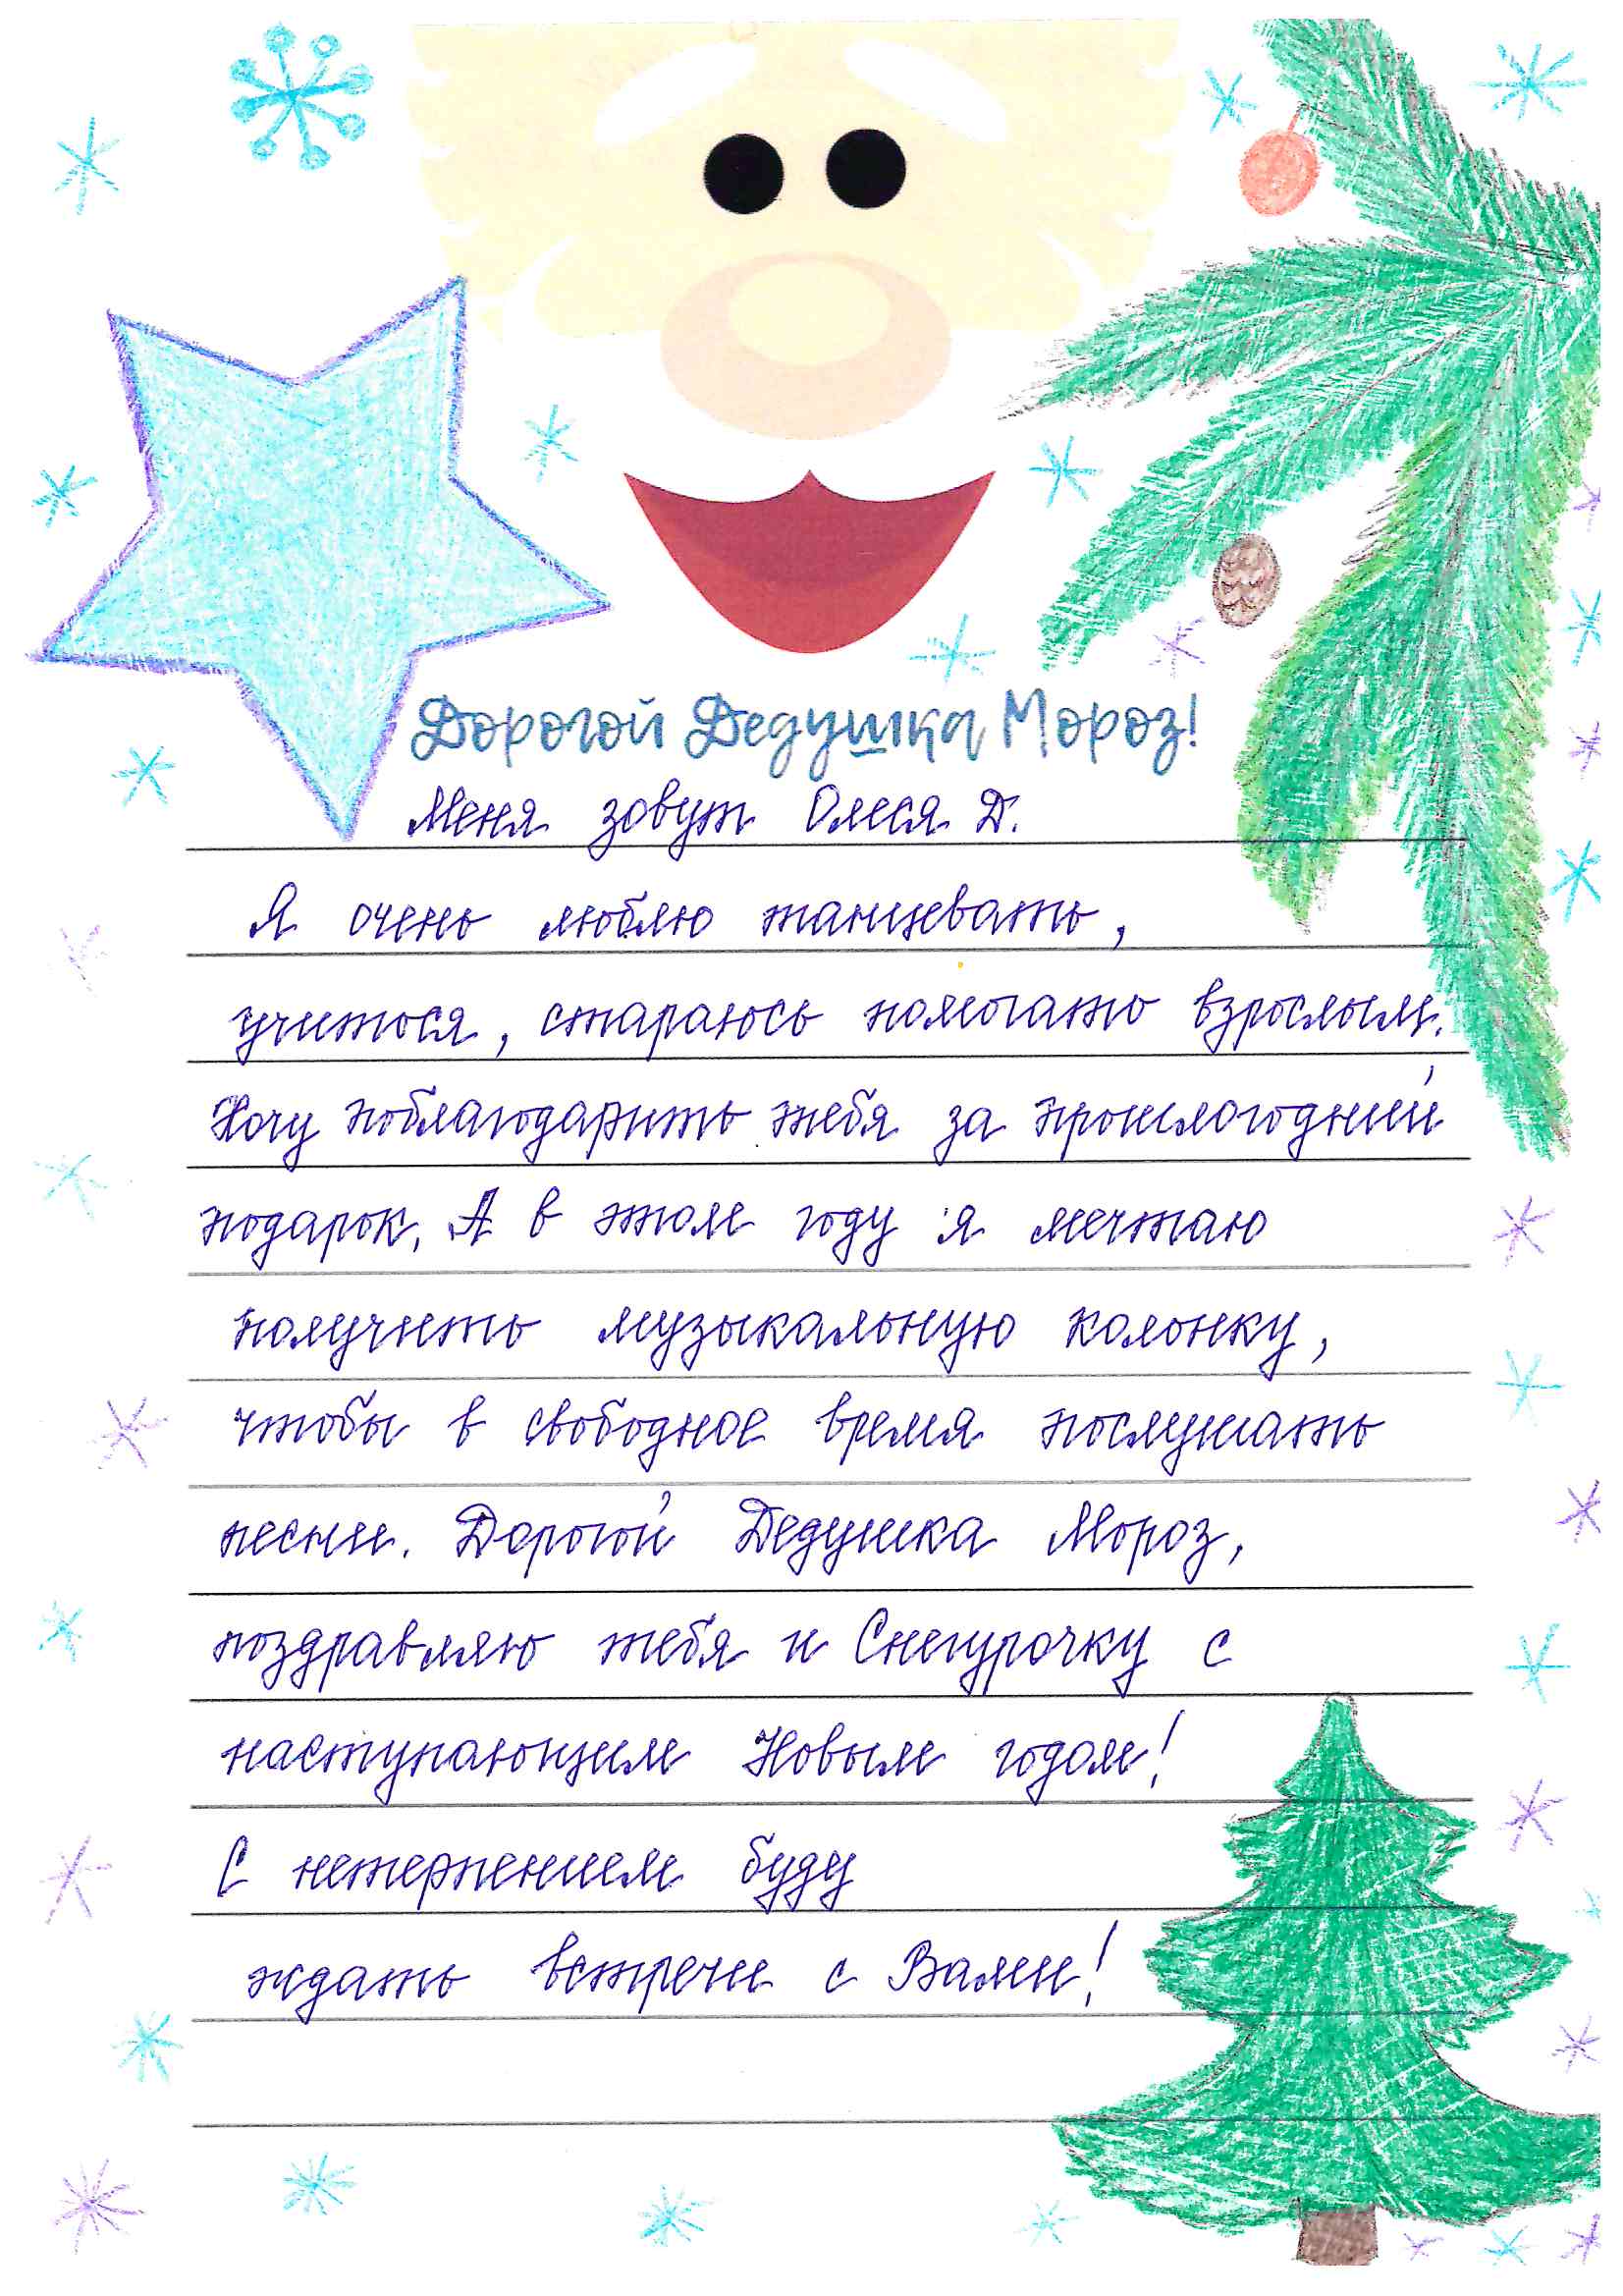 Дорогой Дедушка Мороз!
Меня зовут Олеся Д.
Я очень люблю танцевать,
учиться, стараюсь помогать взрослым.
Хочу поблагодарить тебя за прошлогодний
подарок. А в этом году я мечтаю
получить музыкальную колонку,
чтобы в свободное время послушать
песни. Дорогой Дедушка Мороз,
поздравляю тебя и Снегурочку с
наступающим Новым годом!
С нетерпением буду
ждать встречи с Вами!